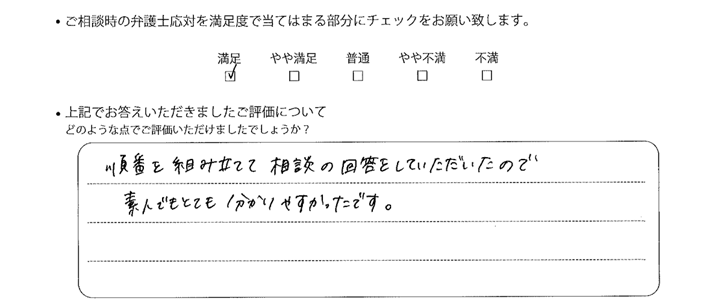 ・ご相談時の弁護士応対を満足度で当てはまる部分にチェックをお願い致します。
満足 やや満足 普通 やや不満 不満
☑ □ □ □ □
・上記でお答えいただきましたご評価について
どのような点でご評価いただけましたでしょうか?
順番を組み立てて相談の回答をしていただいたので
素人でもとても分かりやすかったです。